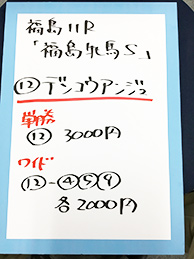 福島11R
「福島牝馬S」
⑫デンコウアンジュ
単勝
⑫ 3000円
ワイド
⑫-④⑤⑨
各2000円